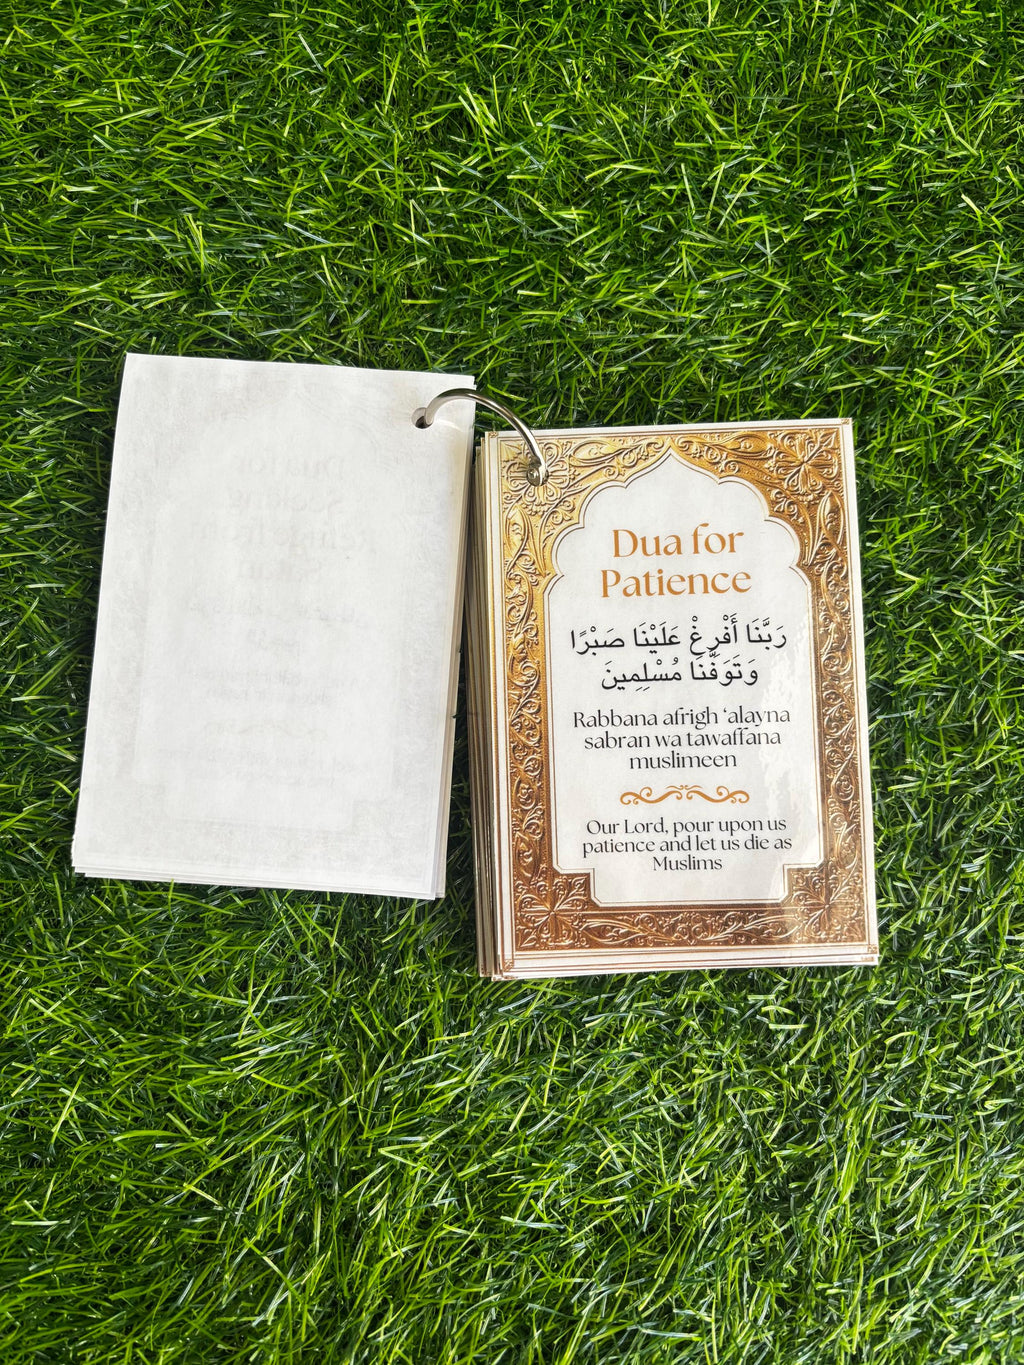 Dua for
Patience
رَبَّنَا أَفْرِغْ عَلَيْنَا صَبْرًا
وَتَوَفَّنَا مُسْلِمِينَ
Rabbana afrigh ‘alayna
sabran wa tawaffana
muslimeen
Our Lord, pour upon us
patience and let us die as
Muslims